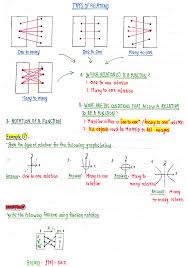 TYPES OF RELATIONS
One to many
One to one
Many to one
Many to many
A. WHICH RELATION(S) IS A FUNCTION?
1. One to one relation
2. Many to one relation
B. WHAT ARE THE CONDITIONS THAT ALLOW A RELATION TO BE A FUNCTION?
1. Must be either "one to one" / "many to one" relation
2. All object must be MAPPED to its images
3. NOTATION OF A FUNCTION
Example 1
State the type of relation for the following graphs below:
Answer:
One to one relation
Answer: Many to one relation
Answer:
Many to one relation
Write the following function using function notation
Answer: